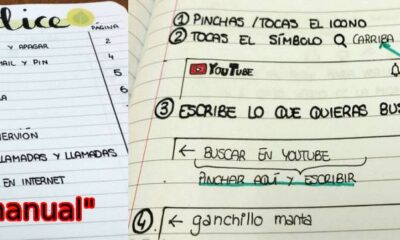 lice
PÁGINA
Y APAGAR 2
MAIL Y PIN 4
5
A 6
NERVIÓN
LLAMADAS Y LLAMADAS
EN INTERNET
manual"
① PINCHAS / TOCAS EL ICONO
② TOCAS EL SÍMBOLO CARRIBA
YOUTUBE
③ ESCRIBE LO QUE QUIERAS BUS
← BUSCAR EN YOUTUBE
PINCHAR AQUÍ Y ESCRIBIR
④ ← ganchillo manta